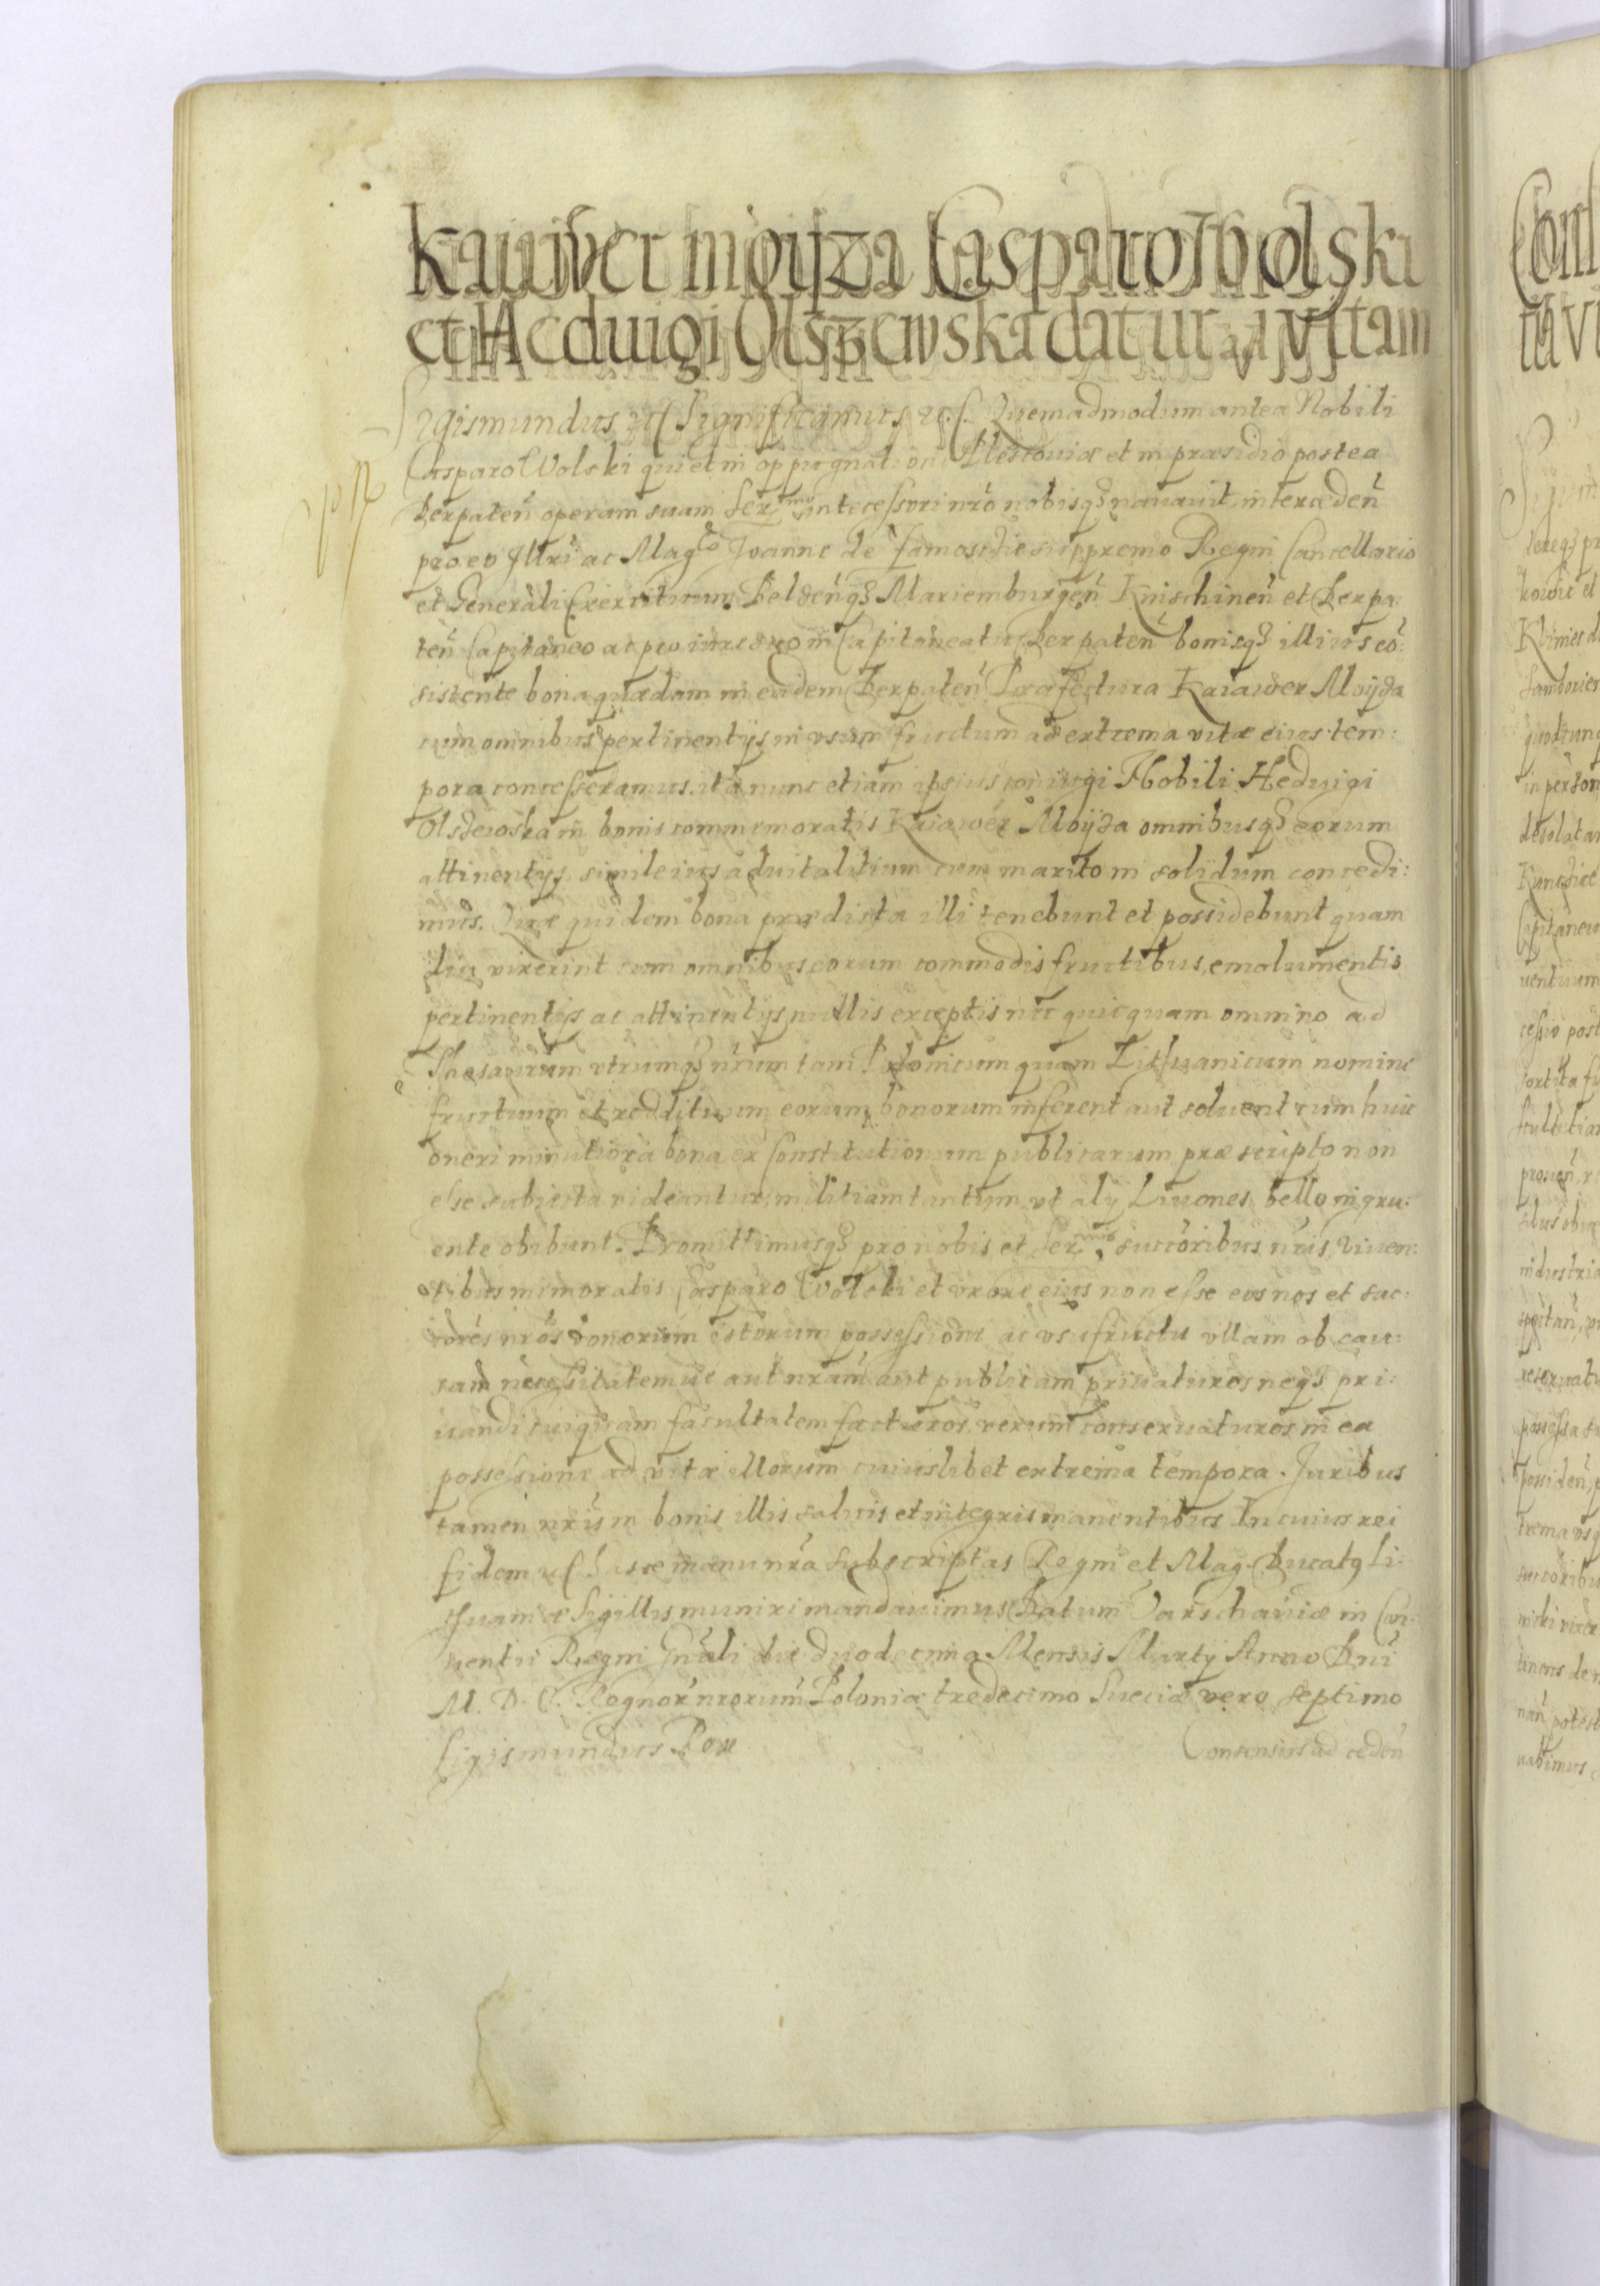 Kaiawer moijza Casparo Wolski
et Heduigi Olszewska datur ad vitam
Sigismundus etc Significamus etc. Quemadmodum antea Nobili
Casparo Wolski qui et in oppugnatione Plescouiæ et in præsidio postea
Derpaten̄ operam suam Ser.mo antecessori nr̄o nobisq3 nauauit, interceden̄
pro eo Illri ac Mag.co Joanne de Zamoscie suppremo Regni Cancellario
et Generali Exercituum, Belzen̄q3 Mariemburgen̄ Knischinen̄ et Derpa
ten̄ Capitaneo ac pro iure suo in Capitaneatu Derpaten̄ bonisq3 illius cō:
sistente bona quædam in eadem Derpaten̄ Præfectura Kaiawer Moijza
cum omnibus pertinentijs in vsum fructum ad extrema vitæ eius tem:
pora concesseramus. ita nunc etiam ipsius coniugi Nobili Heduigi
Olszewska in bonis commemoratis Kaiawer Moijza omnibusq3 eorum
attinentijs simile ius aduitalitium cum marito in solidum concedi:
mus. Quæ quidem bona prædicta illi tenebunt et possidebunt quam
diu vixerint cum omnibus eorum commodis fructibus, emolumentis
pertinentijs ac attinentijs nullis exceptis nec quicquam omnino ad
Thesaurum vtrumq3 nrum tam Polonicum quam Lithuanicum nomine
fructuum et reddituum eorum bonorum inferent aut soluent cum huic
oneri minutiora bona ex constitutionum publicarum præscripto non
esse subiecta videantur, militiam tantum vt alij Liuones bello ingru:
ente obibunt. Promittimusq3 pro nobis et Ser.mis succoribus nr̄is, Viuen:
tibus memoratis Casparo Wolski et vxore eius non esse eos nos et suc:
cores nros bonorum istorum possessione ac vsufructu vllam ob cau:
sam necessitatemue aut nram aut publicam priuaturos neq3 pri:
uandi cuiquam facultatem facturos, verum conseruaturos in ea
possessione ad vitæ illorum cuiuslibet extrema tempora. Juribus
tamen nris in bonis illis saluis et integris manentibus In cuius rei
fidem etc hasce manu nra subscriptas Regni et Mag. Ducatq Li:
thuaniæ Sigillis muniri mandauimus Datum Varschauiæ in Con:
uentu Regni Gn̄ali die duodecima Mensis Martij Anno Dn̄i
M. D. C. Regnor̄ nrorum Poloniæ tredecimo Sueciæ vero septimo
Sigismundus Rex
Consensus ad ceden̄